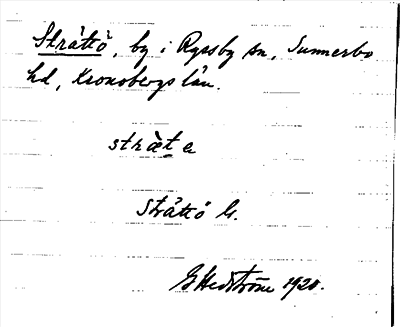 Stråtiö, by i Ryssby sn, Sunnerbo
hd, Kronobergs län.
stràt e
Stråtiö G.
G Hedström 1920.